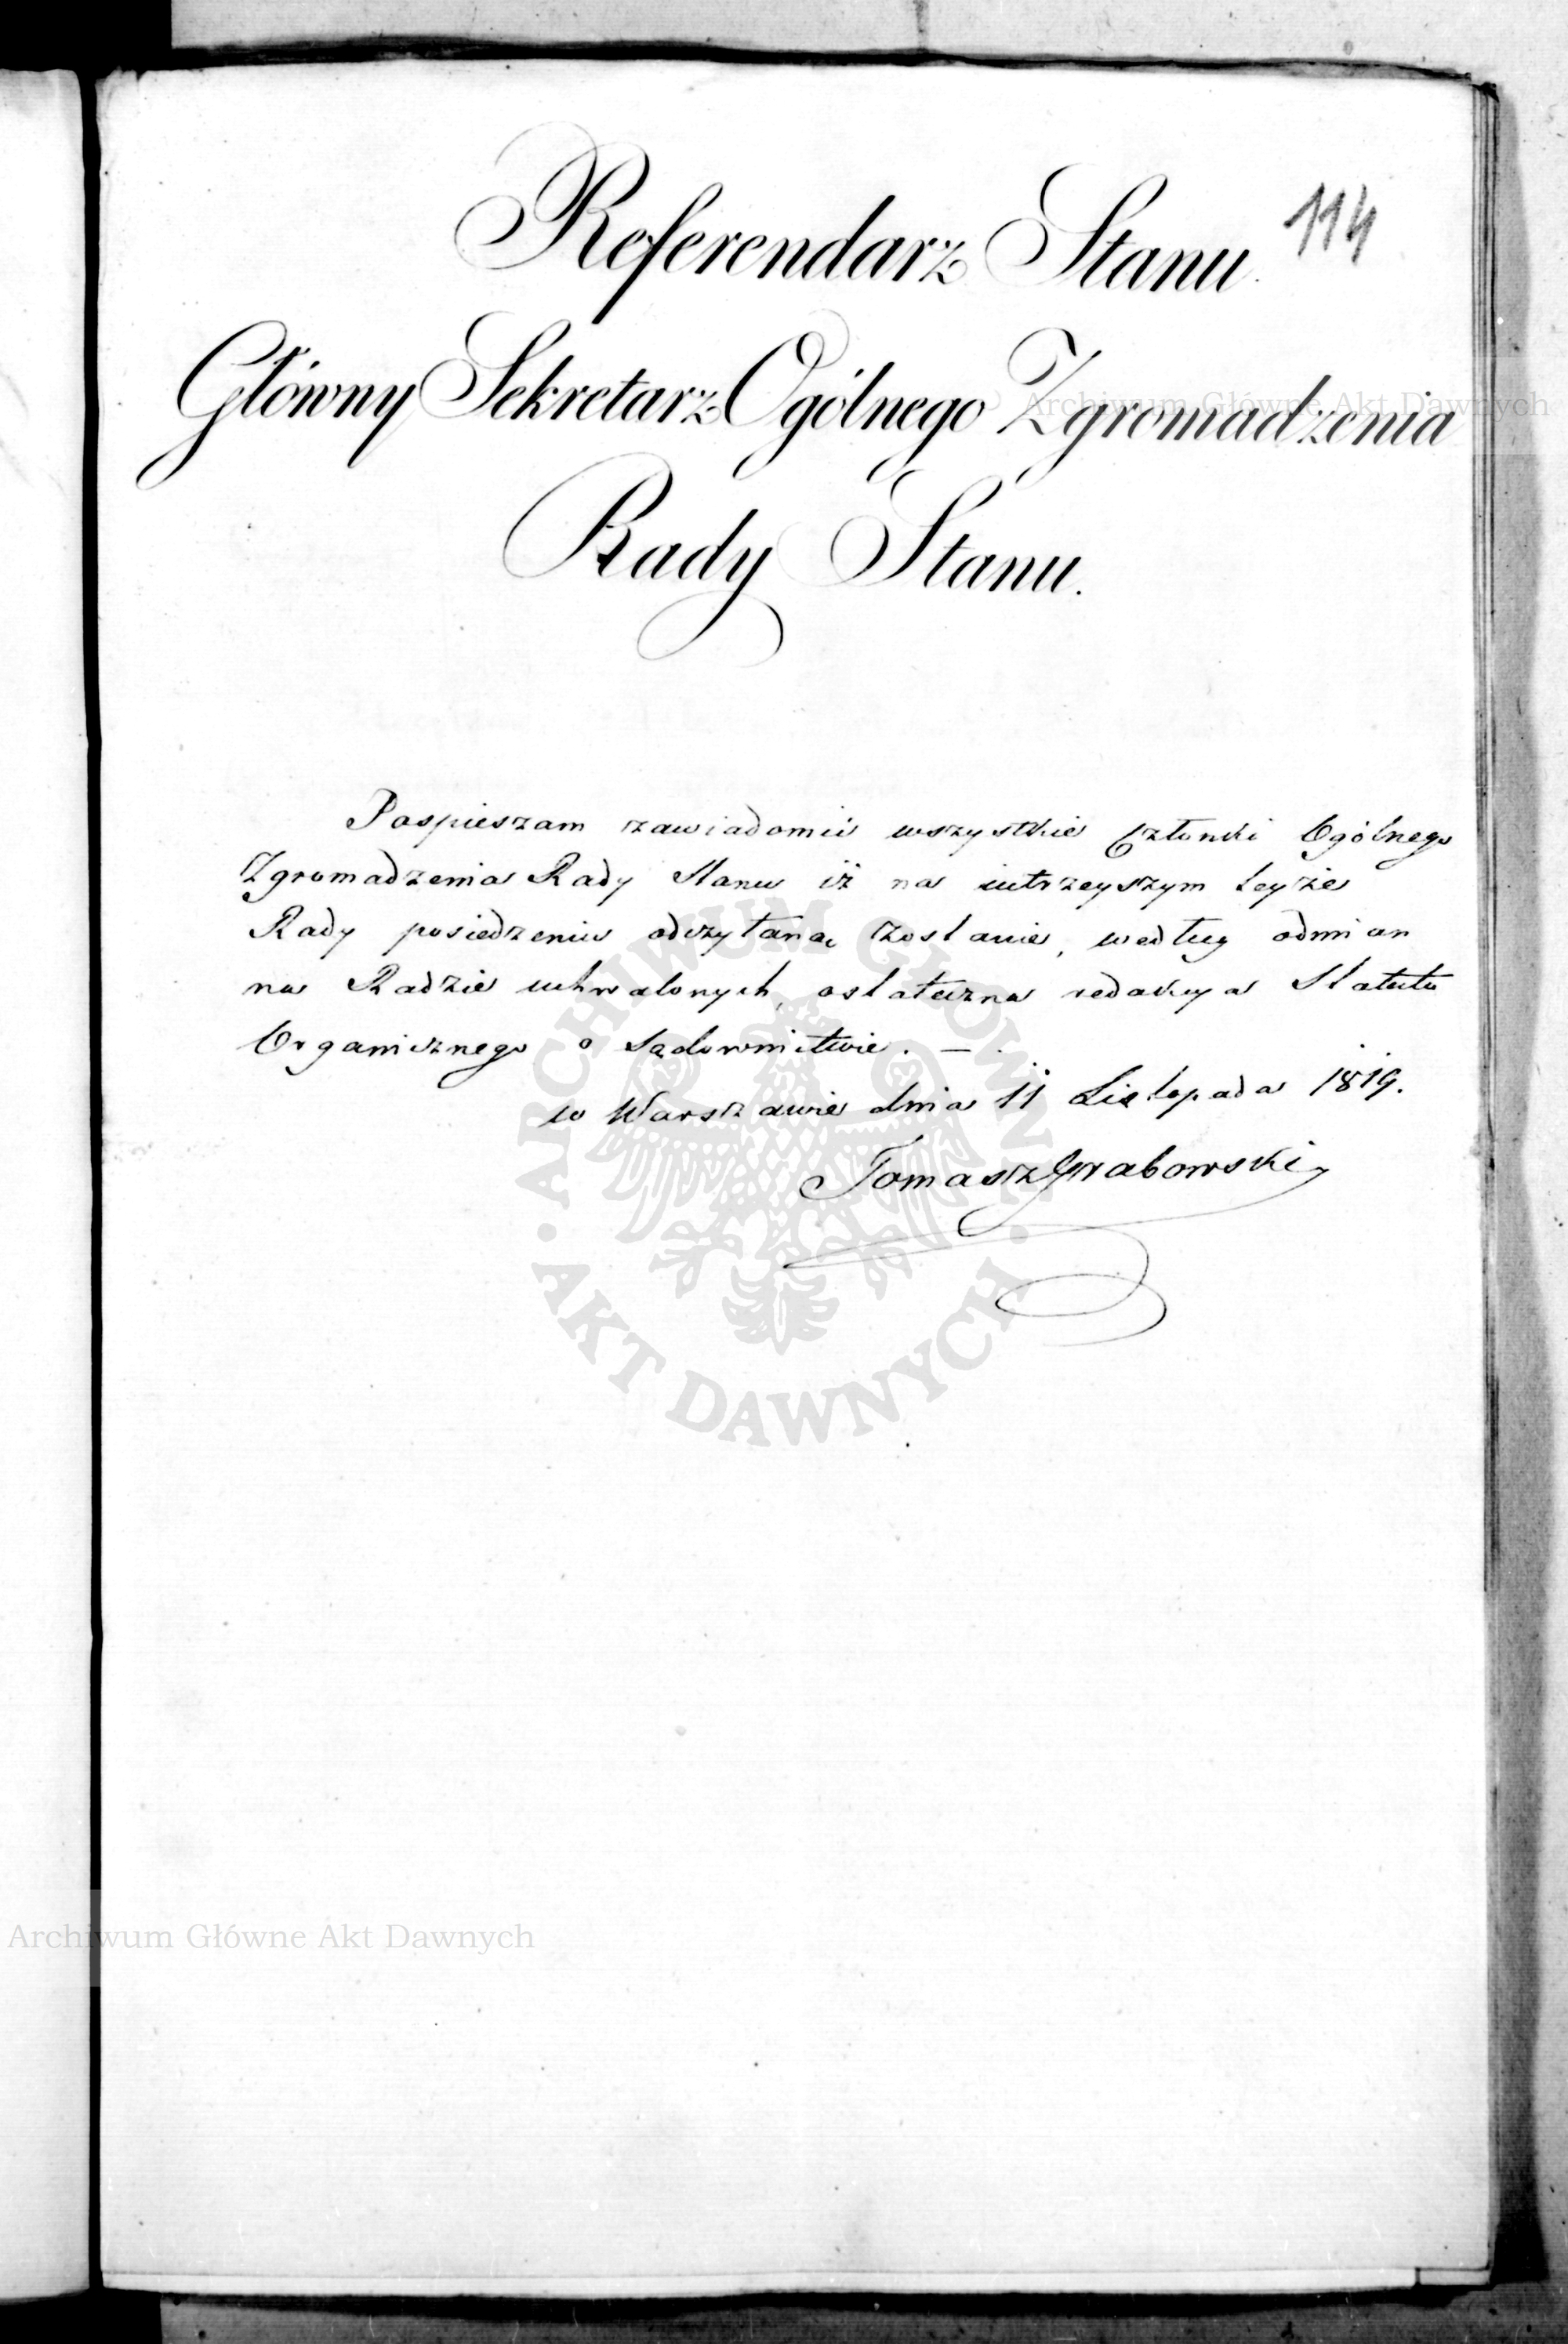 114
Referendarz Stanu.
Główny Sekretarz Ogólnego Zgromadzenia
Rady Stanu.
Pospieszam zawiadomić wszystkie Członki Ogólnego
Zgromadzenia Rady Stanu iż na iutrzeyszym teyże
Rady posiedzeniu odczytaną zostanie, według odmian
na Radzie uchwalonych, ostateczna redakcya Statutu
Organicznego o Sądownictwie. — .
w Warszawie dnia 11 Listopada 1819.
Tomasz Grabowski
Archiwum Główne Akt Dawnych
ARCHIWUM GŁÓWNE · AKT DAWNYCH ·
Archiwum Główne Akt Dawnych